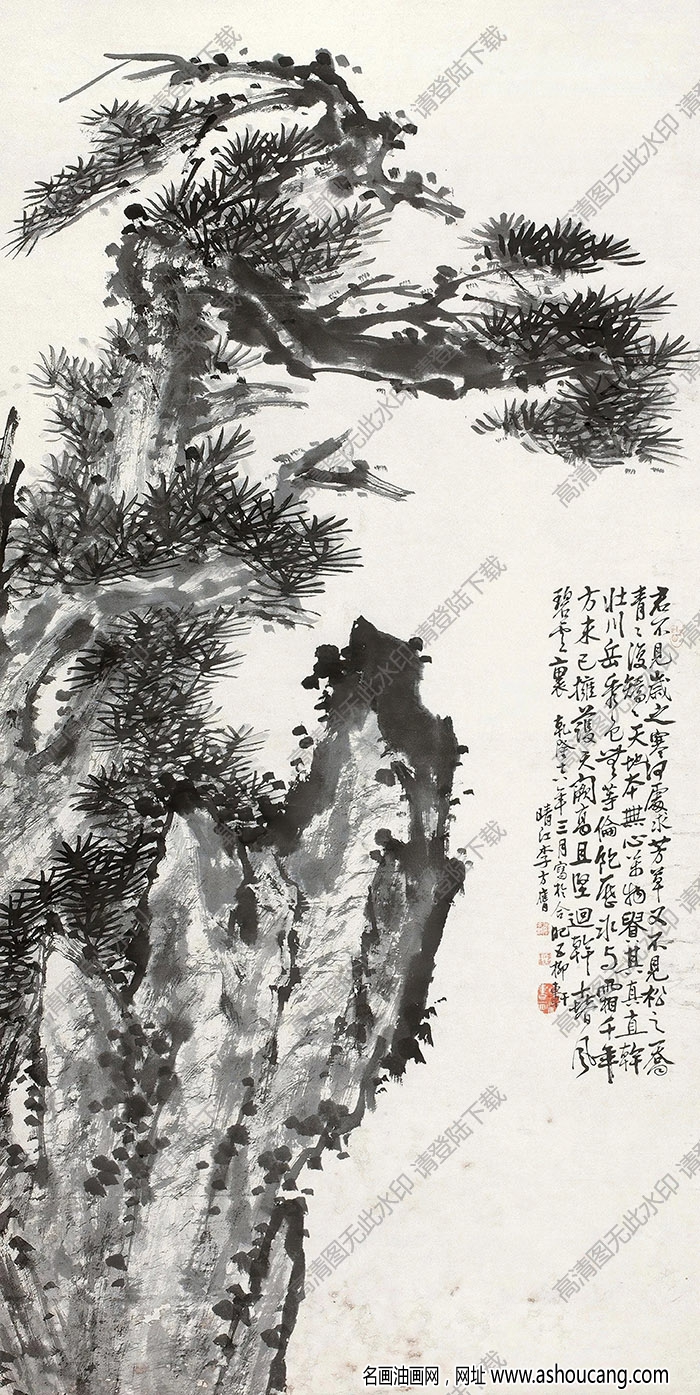 君不見歲之寒何處求芳草又不見松之喬
青〻復矯〻天地本無心萬物貴其真直幹
壯川岳秀色無等倫飽歷冰与霜千年
方未已擁護天闕高且堅迴幹春風
碧雲裏 乾隆十八年三月寫於合肥五柳軒
晴江李方膺
高清图无此水印 请登陆下载
名画油画网，网址 www.ashoucang.com